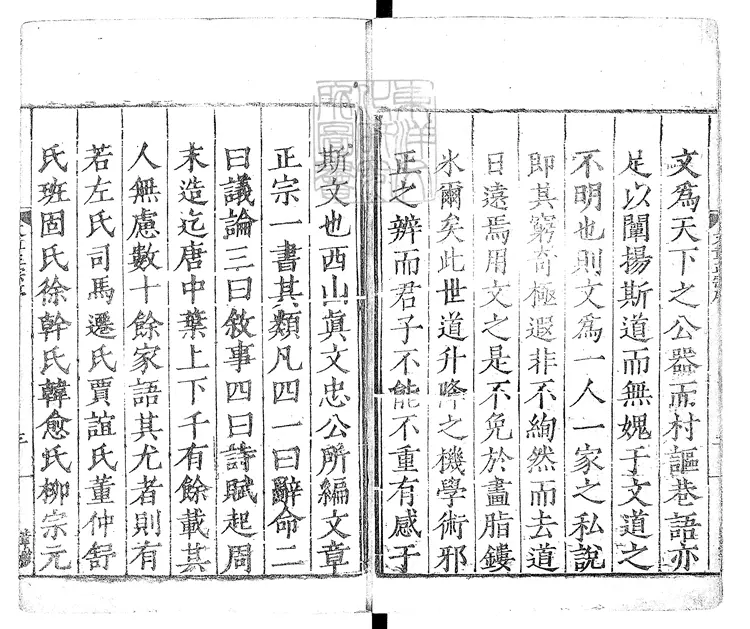 文為天下之公器而村謳巷語亦
足以闡揚斯道而無媿于文道之
不明也則文為一人一家之私說
即其窮奇極遐非不絢然而去道
日遠焉用文之是不免於畫脂鏤
氷爾矣此世道升降之機學術邪
正之辨而君子不能不重有感于
斯文也西山真文忠公所編文章
正宗一書其類凡四一曰辭命二
曰議論三曰敘事四曰詩賦起周
末造迄唐中葉上下千有餘載其
人無慮數十餘家語其尤者則有
若左氏司馬遷氏賈誼氏董仲舒
氏班固氏徐幹氏韓愈氏柳宗元